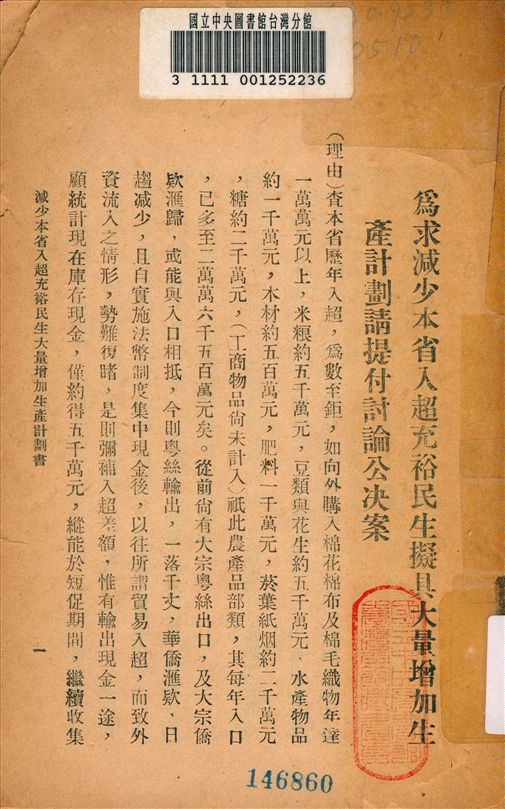 國立中央圖書館台灣分館
3 1111 001252236
爲求減少本省入超充裕民生擬具大量增加生
產計劃請提付討論公决案
(理由)查本省歷年入超，爲數至鉅，如向外購入棉花棉布及棉毛織物年達
一萬萬元以上，米粮約五千萬元，豆類與花生約五千萬元、水產物品
約一千萬元，木材約五百萬元，肥料一千萬元，菸葉紙烟約二千萬元
，糖約二千萬元，(工商物品尙未計入)祇此農產品部類，其每年入口
，已多至二萬萬六千五百萬元矣。從前尙有大宗粵絲出口，及大宗僑
欵滙歸，或能與入口相抵，今則粵絲輸出，一落千丈，華僑滙欵，日
趨減少，且自實施法幣制度集中現金後，以往所謂貿易入超，而致外
資流入之情形，勢難復睹，是則彌補入超差額，惟有輸出現金一途，
顧統計現在庫存現金，僅約得五千萬元，縱能於短促期間，繼續收集
減少本省入超充裕民生大量增加生產計劃書
一
146860